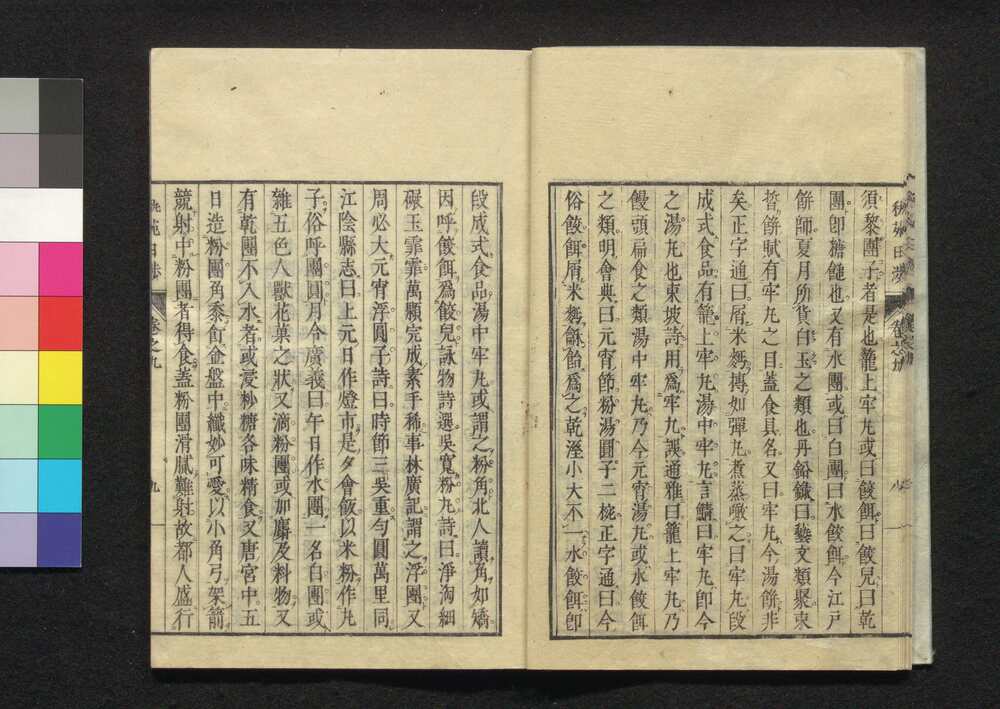 須黎團子者是也籠上牢丸或曰餕餌曰餃兒曰乾
團卽糖䭔也又有水團或曰白團曰水餃餌今江戸
餅師夏月所貨白玉之類也丹鉛錄曰藝文類聚束
晳餅賦有牢丸之目蓋食具名又曰牢丸今湯餅非
矣正字通曰屑米麪摶如彈丸煮蒸曒之曰牢丸段
成式食品有籠上牢丸湯中牢丸言鯖曰牢丸卽今
之湯丸也東坡詩用爲牢九誤通雅曰籠上牢丸乃
饅頭扁食之類湯中牢丸乃今元宵湯丸或水餃餌
之類明會典曰元宵節粉湯圓子二椀正字通曰今
俗餃餌屑米麪龢飴爲之乾溼小大不一水餃餌卽
段成式食品湯中牢丸或謂之粉角北人讀角如矯
因呼餃餌爲餃兒詠物詩選吳寬粉丸詩曰淨淘細
碾玉霏霏萬顆完成素手稀事林廣記謂之浮團又
周必大元宵浮圓子詩曰時節三吳重勻圓萬里同
江陰縣志曰上元日作燈市是夕會飯以米粉作丸
子俗呼團圓月令廣義曰午日作水團一名白團或
雜五色人獸花菓之狀又滴粉團或加麝及料物又
有乾團不入水者或爰杪糖各味精食又唐宮中五
日造粉團角黍飣金盤中纖妙可愛以小角弓架箭
競射中粉團者得食蓋粉團滑膩難射故都人盛行
卷之九
九